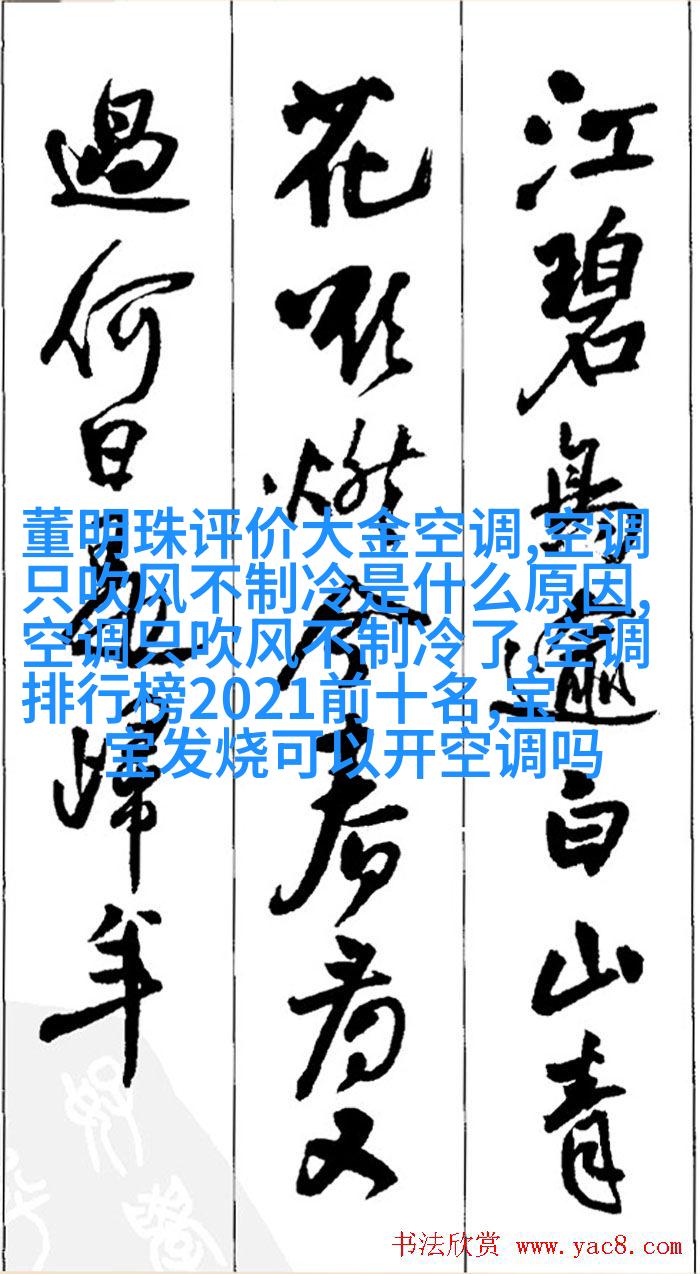 江碧鳥逾白山青
花欲燃今春看又
過何日是歸年
董明珠评价大金空调,空调
只吹风不制冷是什么原因,
空调只吹风不制冷了,空调
排行榜2021前十名,宝
宝发烧可以开空调吗
书法欣赏 www.yac8.com